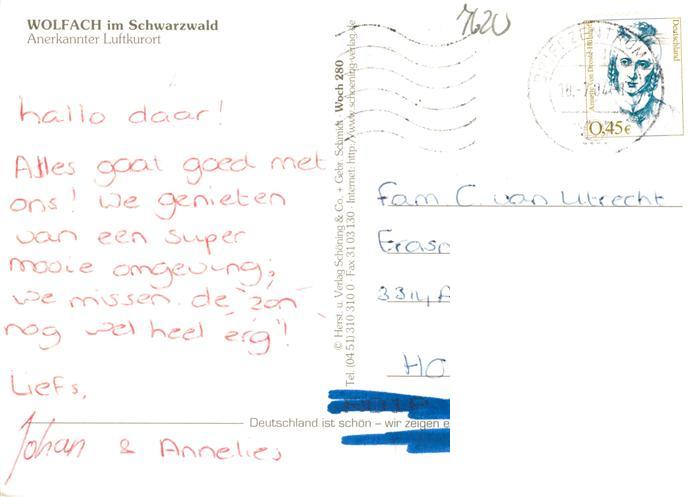 WOLFACH im Schwarzwald
Anerkannter Luftkurort
hallo daar!
Alles gaat goed met
ons! We genieten
van een super
mooie omgeving;
we missen de "zon"
nog wel heel erg!
Liefs,
Johan & Annelies
© Herst. u. Verlag Schöning & Co. + Gebr. Schmidt · Woch 280
Tel. (04 51) 310 310 0 · Fax 31 03 130 · Internet: http://www.schoening-verlag.de
7620
BRIEFZENTRUM
Deutschland
Annette von Droste-Hülshoff
0,45€
Fam C. van Utrecht
Eras
3314
HO
Deutschland ist schön – wir zeigen e